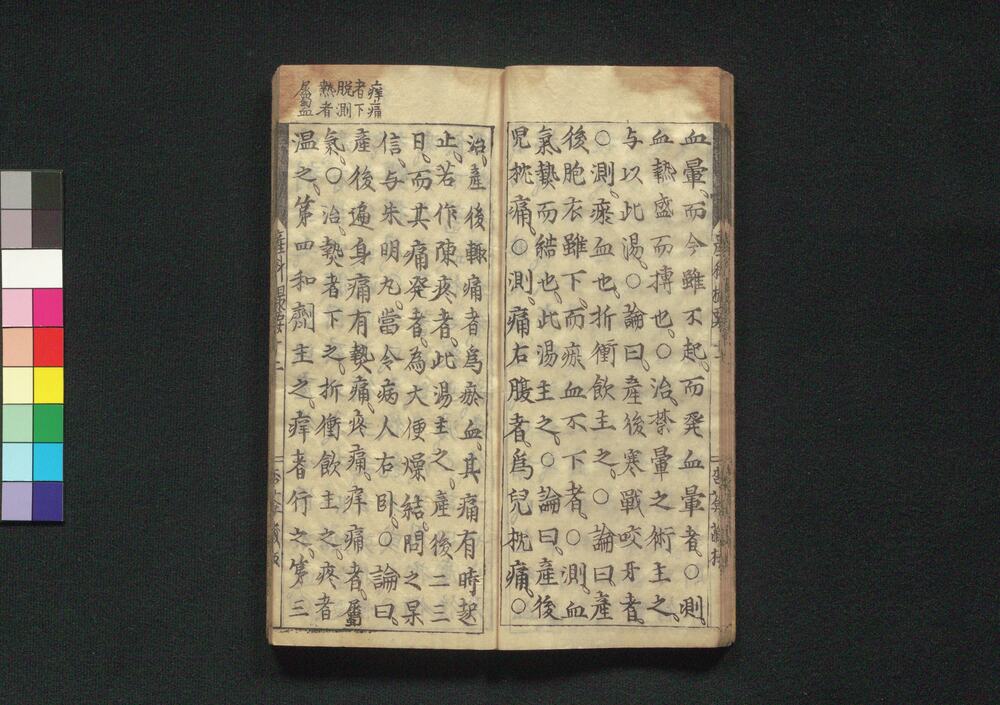 血暈、而今雖不起、而発血暈者、〇測、
血熱盛而搏也、〇治、禁暈之術主之、
与以此湯、〇論曰、産後寒戰咬牙者、
〇測、瘀血也、折衝飲主之、〇論曰、産
後胞衣雖下、而瘀血不下者、〇測、血
氣執而結也、此湯主之、〇論曰、産後
兒枕痛、〇測、痛右腹者、爲兒枕痛、〇
治、産後輙痛者爲瘀血、其痛有時起
止、若作陳疼者、此湯主之、産後二三
日、而其痛発者、為大便燥結、問之果
信、与朱明丸、當令病人右卧、〇論曰、
産後遍身痛、有執痛、疼痛、痒痛者、屬
氣、〇治、執者下之、折衝飲主之、疼者
温之、第四和劑主之、痒者行之、第三
痒痛
者下
脱測
熱者